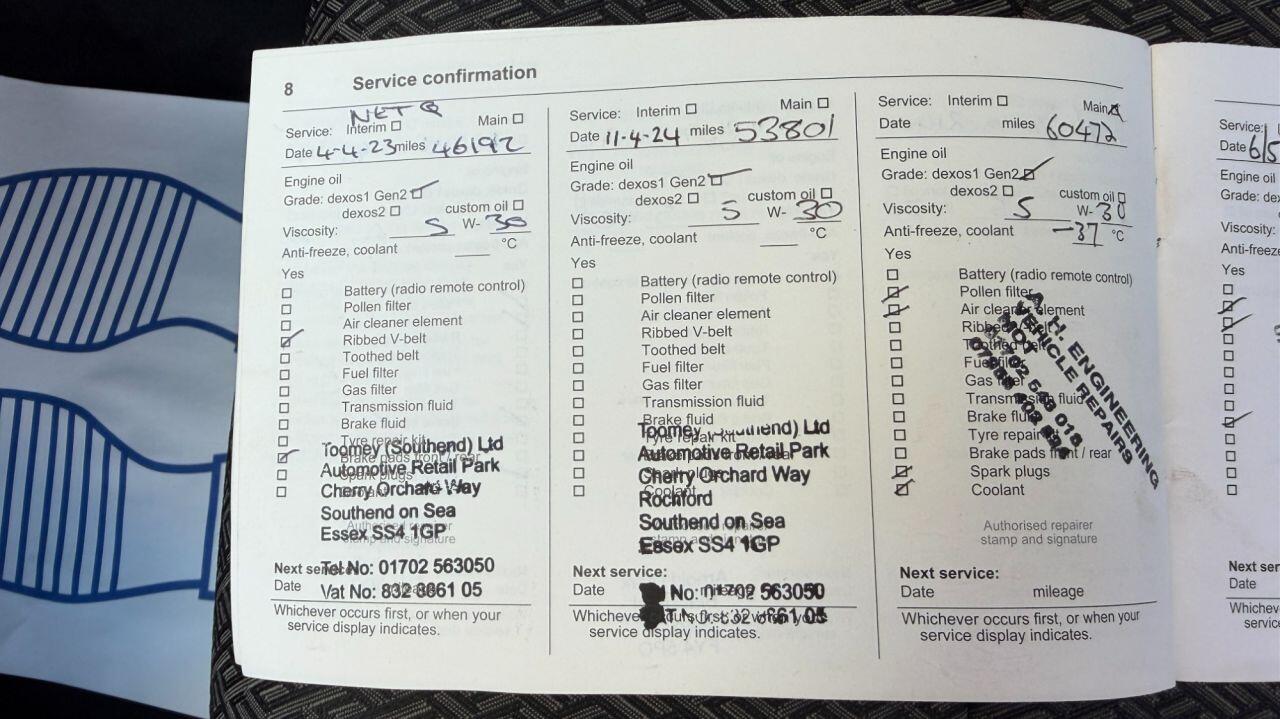 8 Service confirmation
NET Q
Service: Interim Main
Date 4-4-23 miles 46192
Engine oil
Grade: dexos1 Gen2
dexos2 custom oil
Viscosity: 5 W- 30
Anti-freeze, coolant °C
Yes
Battery (radio remote control)
Pollen filter
Air cleaner element
Ribbed V-belt
Toothed belt
Fuel filter
Gas filter
Transmission fluid
Brake fluid
Tyre repair kit
Brake pads front / rear
Spark plugs
Toomey (Southend) Ltd
Automotive Retail Park
Cherry Orchard Way
Southend on Sea
Essex SS4 1GP
Authorised repairer
stamp and signature
Tel No: 01702 563050
Vat No: 832 8661 05
Next service:
Date
Whichever occurs first, or when your
service display indicates.
Service: Interim Main
Date 11-4-24 miles 53801
Engine oil
Grade: dexos1 Gen2
dexos2 custom oil
Viscosity: 5 W- 30
Anti-freeze, coolant °C
Yes
Battery (radio remote control)
Pollen filter
Air cleaner element
Ribbed V-belt
Toothed belt
Fuel filter
Gas filter
Transmission fluid
Brake fluid
Tyre repair kit
Coolant
Toomey (Southend) Ltd
Automotive Retail Park
Cherry Orchard Way
Rochford
Southend on Sea
Essex SS4 1GP
Next service:
Date mileage
No: 01702 563050
Whichever occurs first, or when your
service display indicates.
Service: Interim Main
Date miles 60472
Engine oil
Grade: dexos1 Gen2
dexos2 custom oil
Viscosity: 5 W- 30
Anti-freeze, coolant -37 °C
Yes
Battery (radio remote control)
Pollen filter
Air cleaner element
Ribbed V-belt
Toothed belt
Fuel filter
Gas filter
Transmission fluid
Brake fluid
Tyre repair kit
Brake pads front / rear
Spark plugs
Coolant
A. H. ENGINEERING
VEHICLE REPAIRS
MOT
Authorised repairer
stamp and signature
Next service:
Date mileage
Whichever occurs first, or when your
service display indicates.
Service:
Date 6/5
Engine oil
Grade:
Viscosity:
Anti-freeze
Yes
Date